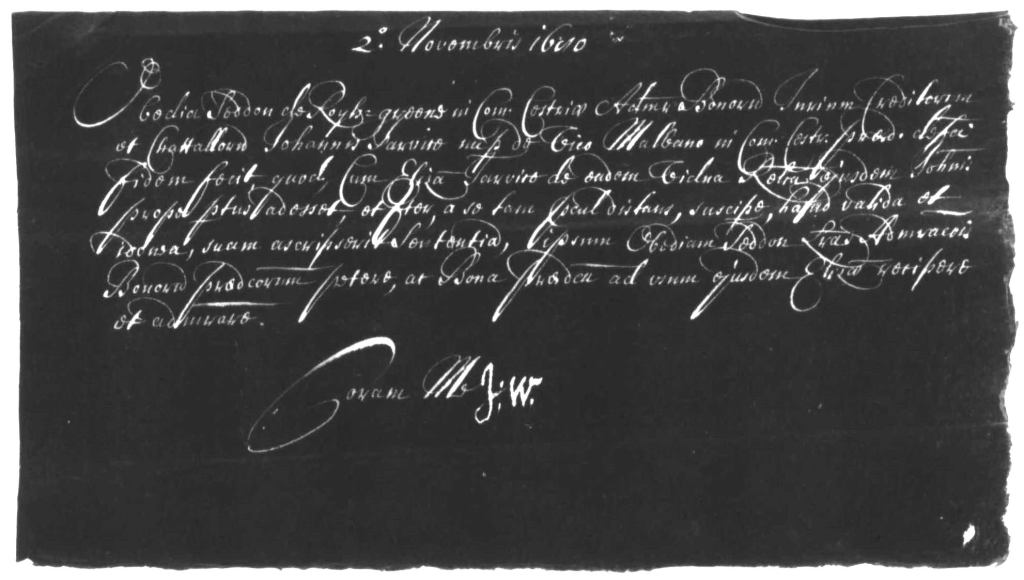 2° Novembris 1690
Obedia Peddon de Royls=greene in Com: Cestriæ Admr Bonorū Jurium Creditorum
et Chattallorū Johannis Jarvice nup de Vico Malbano in Com: Cestr: præd: defci
fidem fecit quod, Cum Eliza Jarvice de eadem Vidua Relcta ejusdem Johnis
prope ptus adesset et Iter, a se tam pcul distans, suscipe, haud valida et
idonea, suam ascripserit Sententiā, ipsum Obediam Peddon Lrās Admraconis
Bonorū Prædcorum petere, ac Bona Prædca ad usum ejusdem Elizæ recipere
et admrare.
Coram Me J: W.